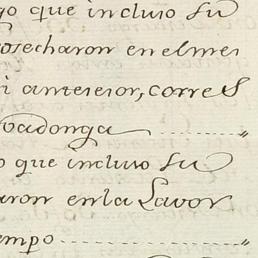 go que incluso su
cosecharon en el mes
i anterior, corres
vadonga
o que incluso su
aron en la Lavor
empo